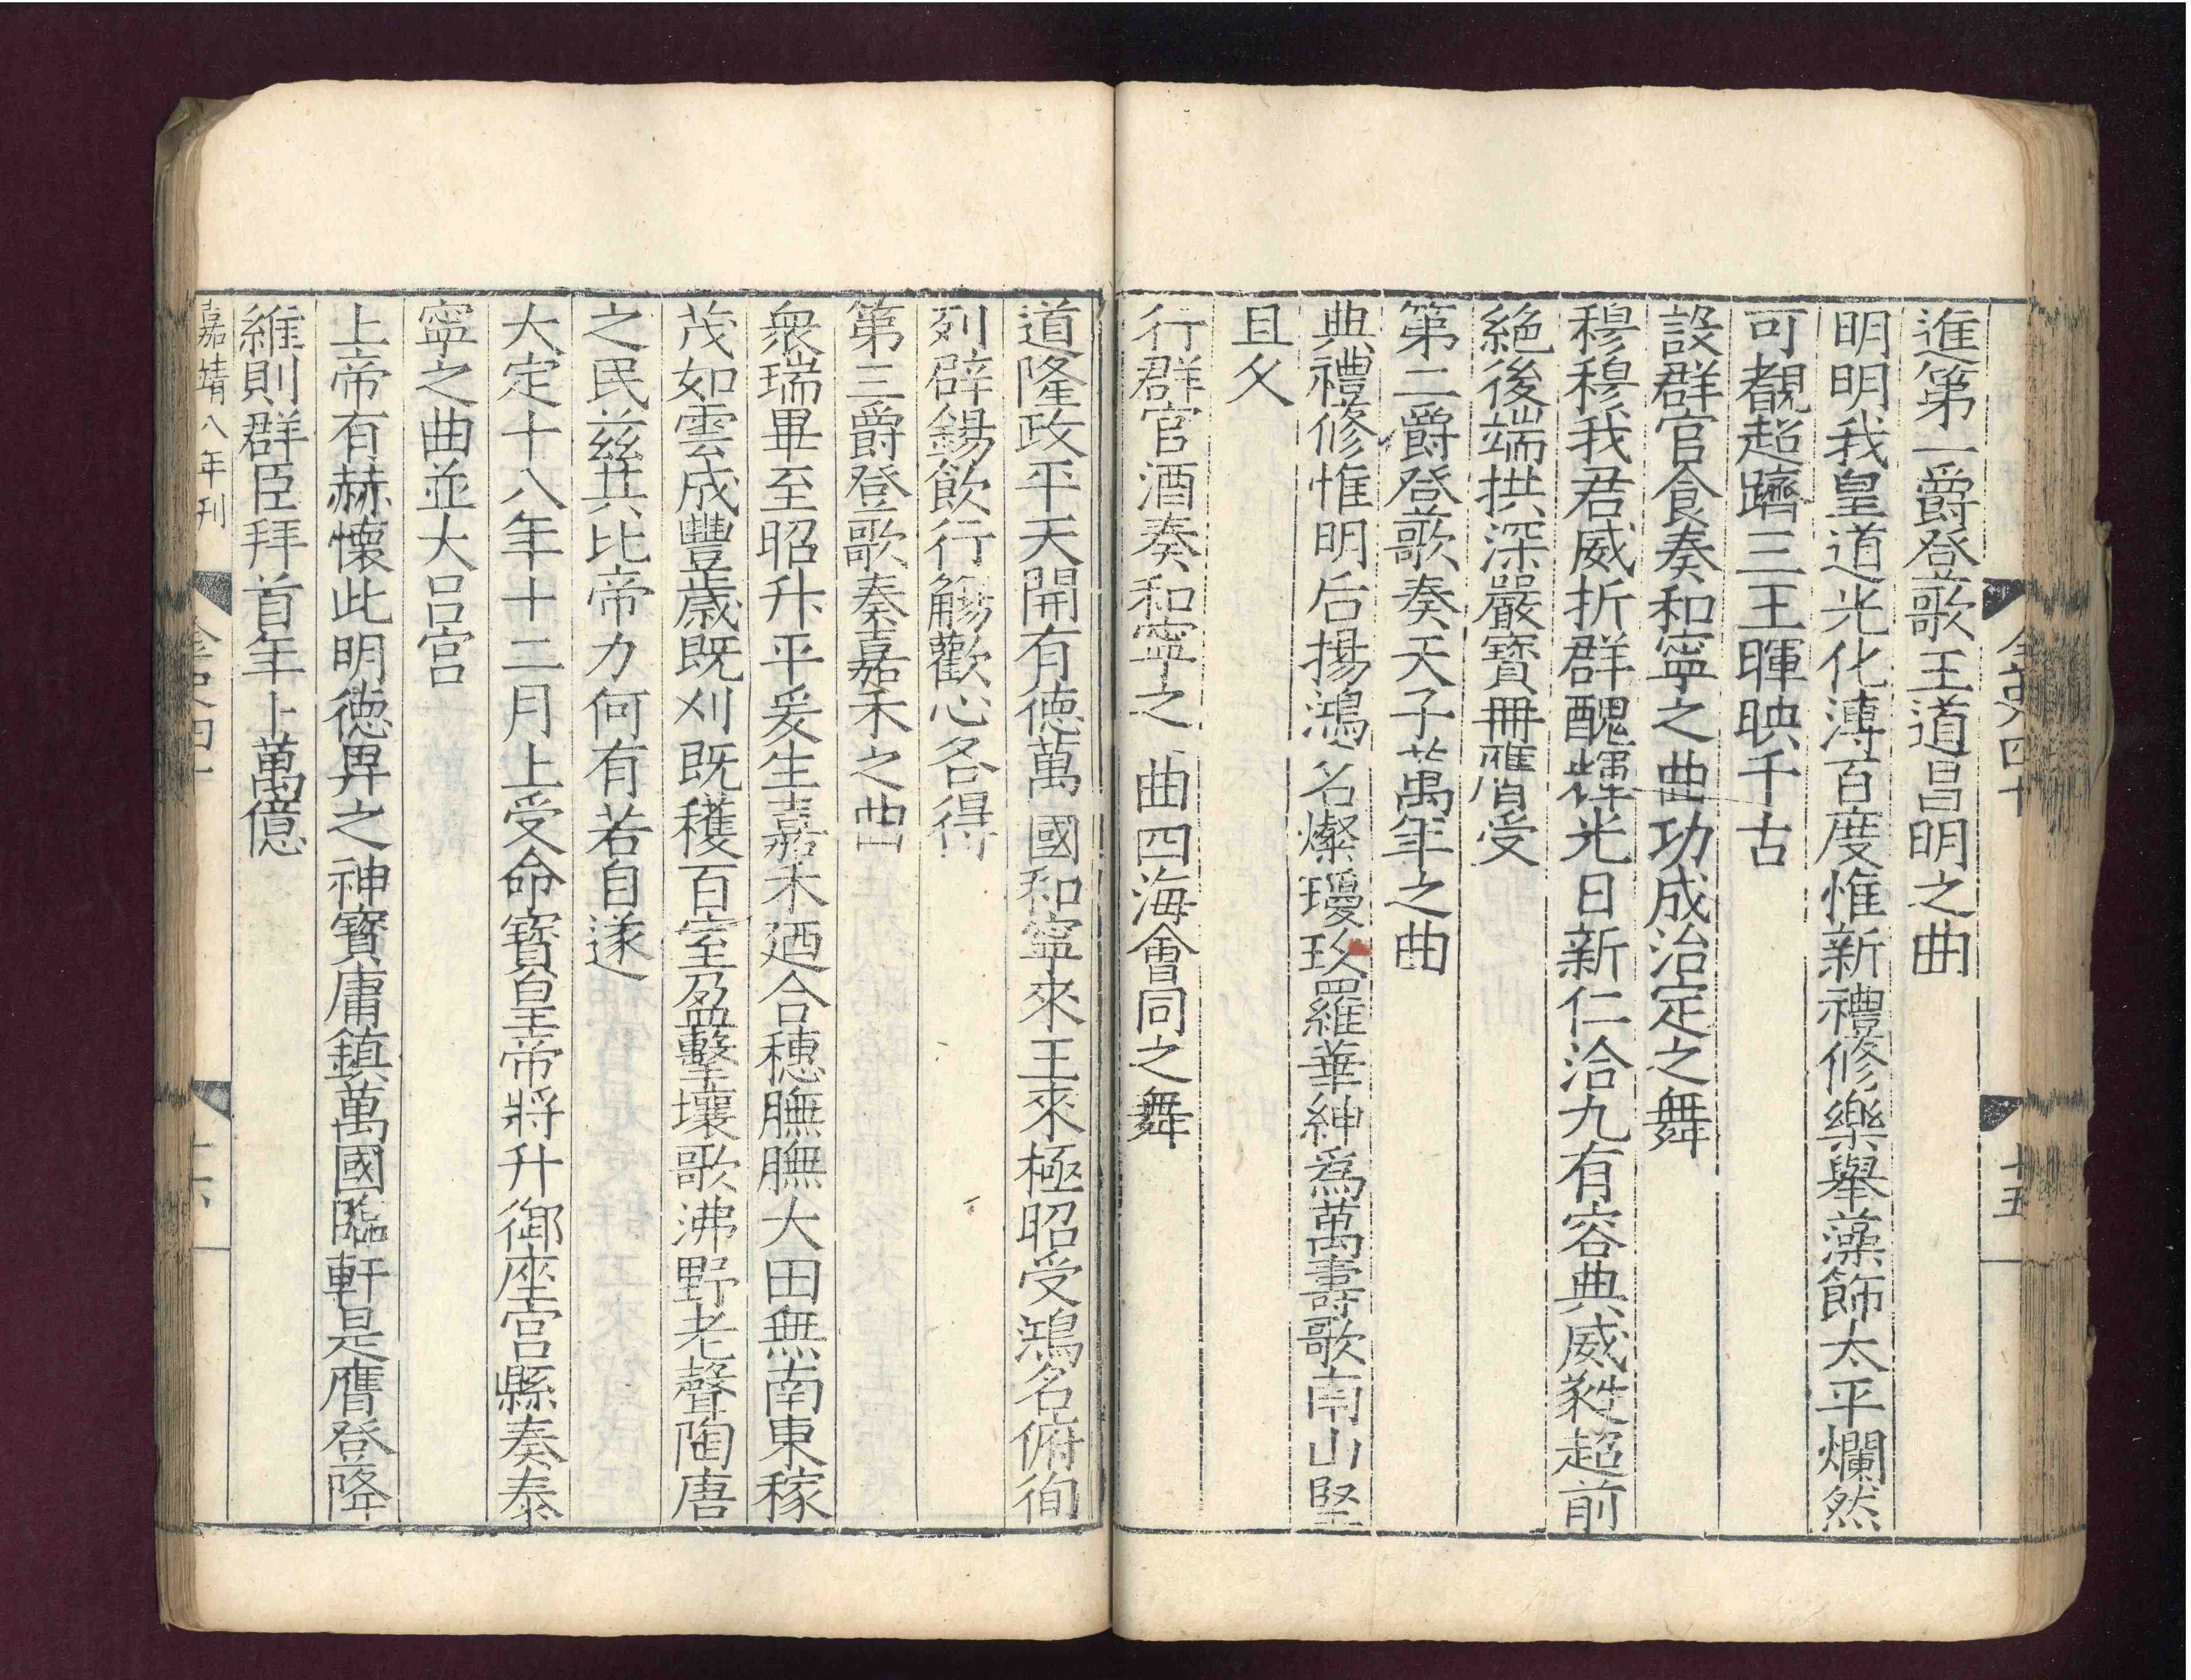 進第一爵登歌王道昌明之曲
明明我皇道光化溥百度惟新禮修樂舉藻飾太平爛然
可覩超躋三王暉映千古
設群官食奏和寧之曲功成治定之舞
穆穆我君威折群醜輝光日新仁洽九有容典威蕤超前
絶後端拱深嚴寶冊膺受
第二爵登歌奏天子萬年之曲
典禮修惟明后揚鴻名燦瓊玖羅華紳爲萬壽歌南山堅
且久
行群官酒奏和寧之曲四海會同之舞
金史四十
十五
道隆政平天開有德萬國和寧來王來極昭受鴻名俯徇
列辟錫飲行觴歡心各得
第三爵登歌奏嘉禾之曲
衆瑞畢至昭升平爰生嘉禾廼合穗膴膴大田無南東稼
茂如雲成豐歲既刈既穫百室盈擊壤歌沸野老聲陶唐
之民兹其比帝力何有若自遂
大定十八年十二月上受命寶皇帝將升御座宮縣奏泰
寧之曲並大呂宮
上帝有赫懷此明德畀之神寶庸鎮萬國臨軒是膺登降
維則群臣拜首年卜萬億
嘉靖八年刊
金史四十
十六